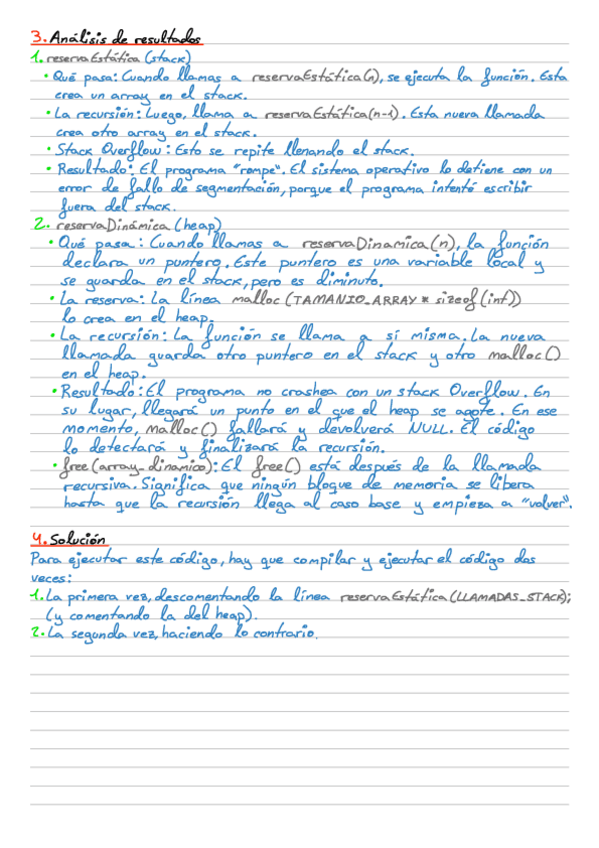 3. Análisis de resultados
1. reservaEstática (stack)
• Qué pasa: Cuando llamas a reservaEstática(n), se ejecuta la función. Esta
crea un array en el stack.
• La recursión: Luego, llama a reservaEstática(n-1). Esta nueva llamada
crea otro array en el stack.
• Stack Overflow: Esto se repite llenando el stack.
• Resultado: El programa "rompe". El sistema operativo lo detiene con un
error de fallo de segmentación, porque el programa intentó escribir
fuera del stack.
2. reservaDinámica (heap)
• Qué pasa: Cuando llamas a reservaDinamica(n), la función
declara un puntero. Este puntero es una variable local y
se guarda en el stack, pero es diminuto.
• La reserva: La línea malloc (TAMANIO_ARRAY * sizeof(int))
lo crea en el heap.
• La recursión: La función se llama a sí misma. La nueva
llamada guarda otro puntero en el stack y otro malloc()
en el heap.
• Resultado: El programa no crashea con un stack Overflow. En
su lugar, llegará un punto en el que el heap se agote. En ese
momento, malloc() fallará y devolverá NULL. El código
lo detectará y finalizará la recursión.
• free(array_dinamico): El free() está después de la llamada
recursiva. Significa que ningún bloque de memoria se libera
hasta que la recursión llega al caso base y empieza a "volver".
4. Solución
Para ejecutar este código, hay que compilar y ejecutar el código dos
veces:
1. La primera vez, descomentando la línea reservaEstática(LLAMADAS_STACK);
(y comentando la del heap).
2. La segunda vez, haciendo lo contrario.